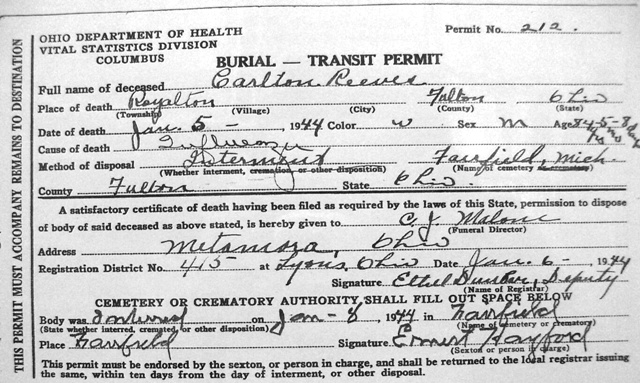 OHIO DEPARTMENT OF HEALTH
VITAL STATISTICS DIVISION
COLUMBUS
Permit No. 212.
BURIAL — TRANSIT PERMIT
Full name of deceased Carlton Reeves
Place of death Royalton Fulton Ohio
(Township) (Village) (City) (County) (State)
Date of death Jan. 5 - , 1944 Color w Sex M Age 84
Cause of death Influenza
Method of disposal Interment Fairfield, Mich.
(Whether interment, cremation, or other disposition) (Name of cemetery or crematory)
County Fulton State Ohio.
A satisfactory certificate of death having been filed as required by the laws of this State, permission to dispose
of body of said deceased as above stated, is hereby given to C. J. Malone
(Funeral Director)
Address Metamora, Ohio
Registration District No. 415 at Lyons, Ohio Date Jan. 6 - , 1944
Signature Ethel Dunbar, Deputy
(Name of Registrar)
CEMETERY OR CREMATORY AUTHORITY SHALL FILL OUT SPACE BELOW
Body was Interred on Jan - 8 , 1944 in Fairfield
(State whether interred, cremated or other disposition) (Name of cemetery or crematory)
Place Fairfield Signature Ernest Hayford
(Sexton or person in charge)
This permit must be endorsed by the sexton, or person in charge, and shall be returned to the local registrar issuing
the same, within ten days from the day of interment, or other disposal.
THIS PERMIT MUST ACCOMPANY REMAINS TO DESTINATION